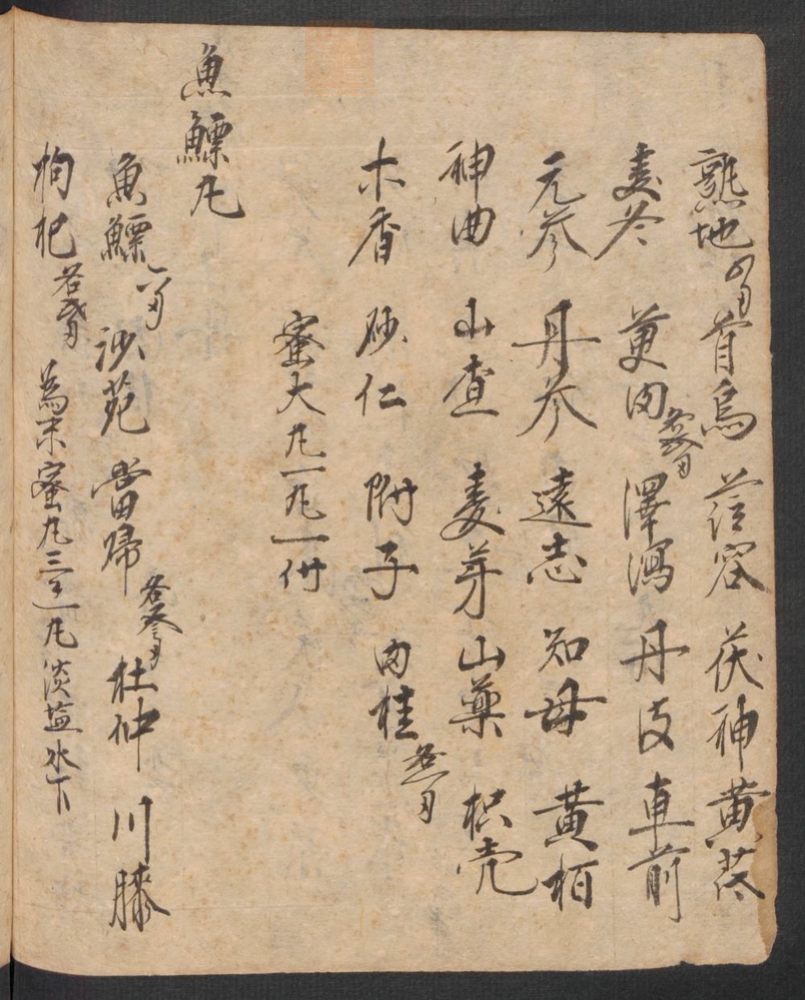 熟地 四〢 首烏 蓯容 茯神 黄茋
麦冬 萸肉 各贰〢 澤瀉 丹皮 車前
元参 丹参 遠志 知母 黄栢
神曲 山查 麦芽 山藥 枳壳
木香 砂仁 附子 肉桂
蜜大丸一丸一付
魚鰾丸
魚鰾 沙苑 當歸 杜仲 川膝
枸杞 為末蜜丸三丸淡盐水下